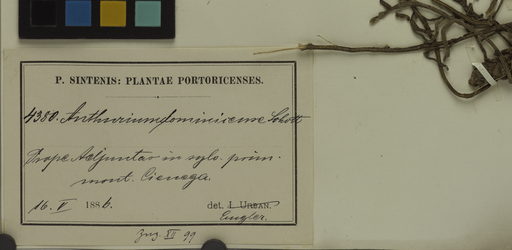 P. SINTENIS: PLANTAE PORTORICENSES.
4380. Anthurium dominicense Schott
Prope Adjuntas in sylv. prim.
mont. Cienega.
16. V 1886. det. I. URBAN.
Engler.
XII 99